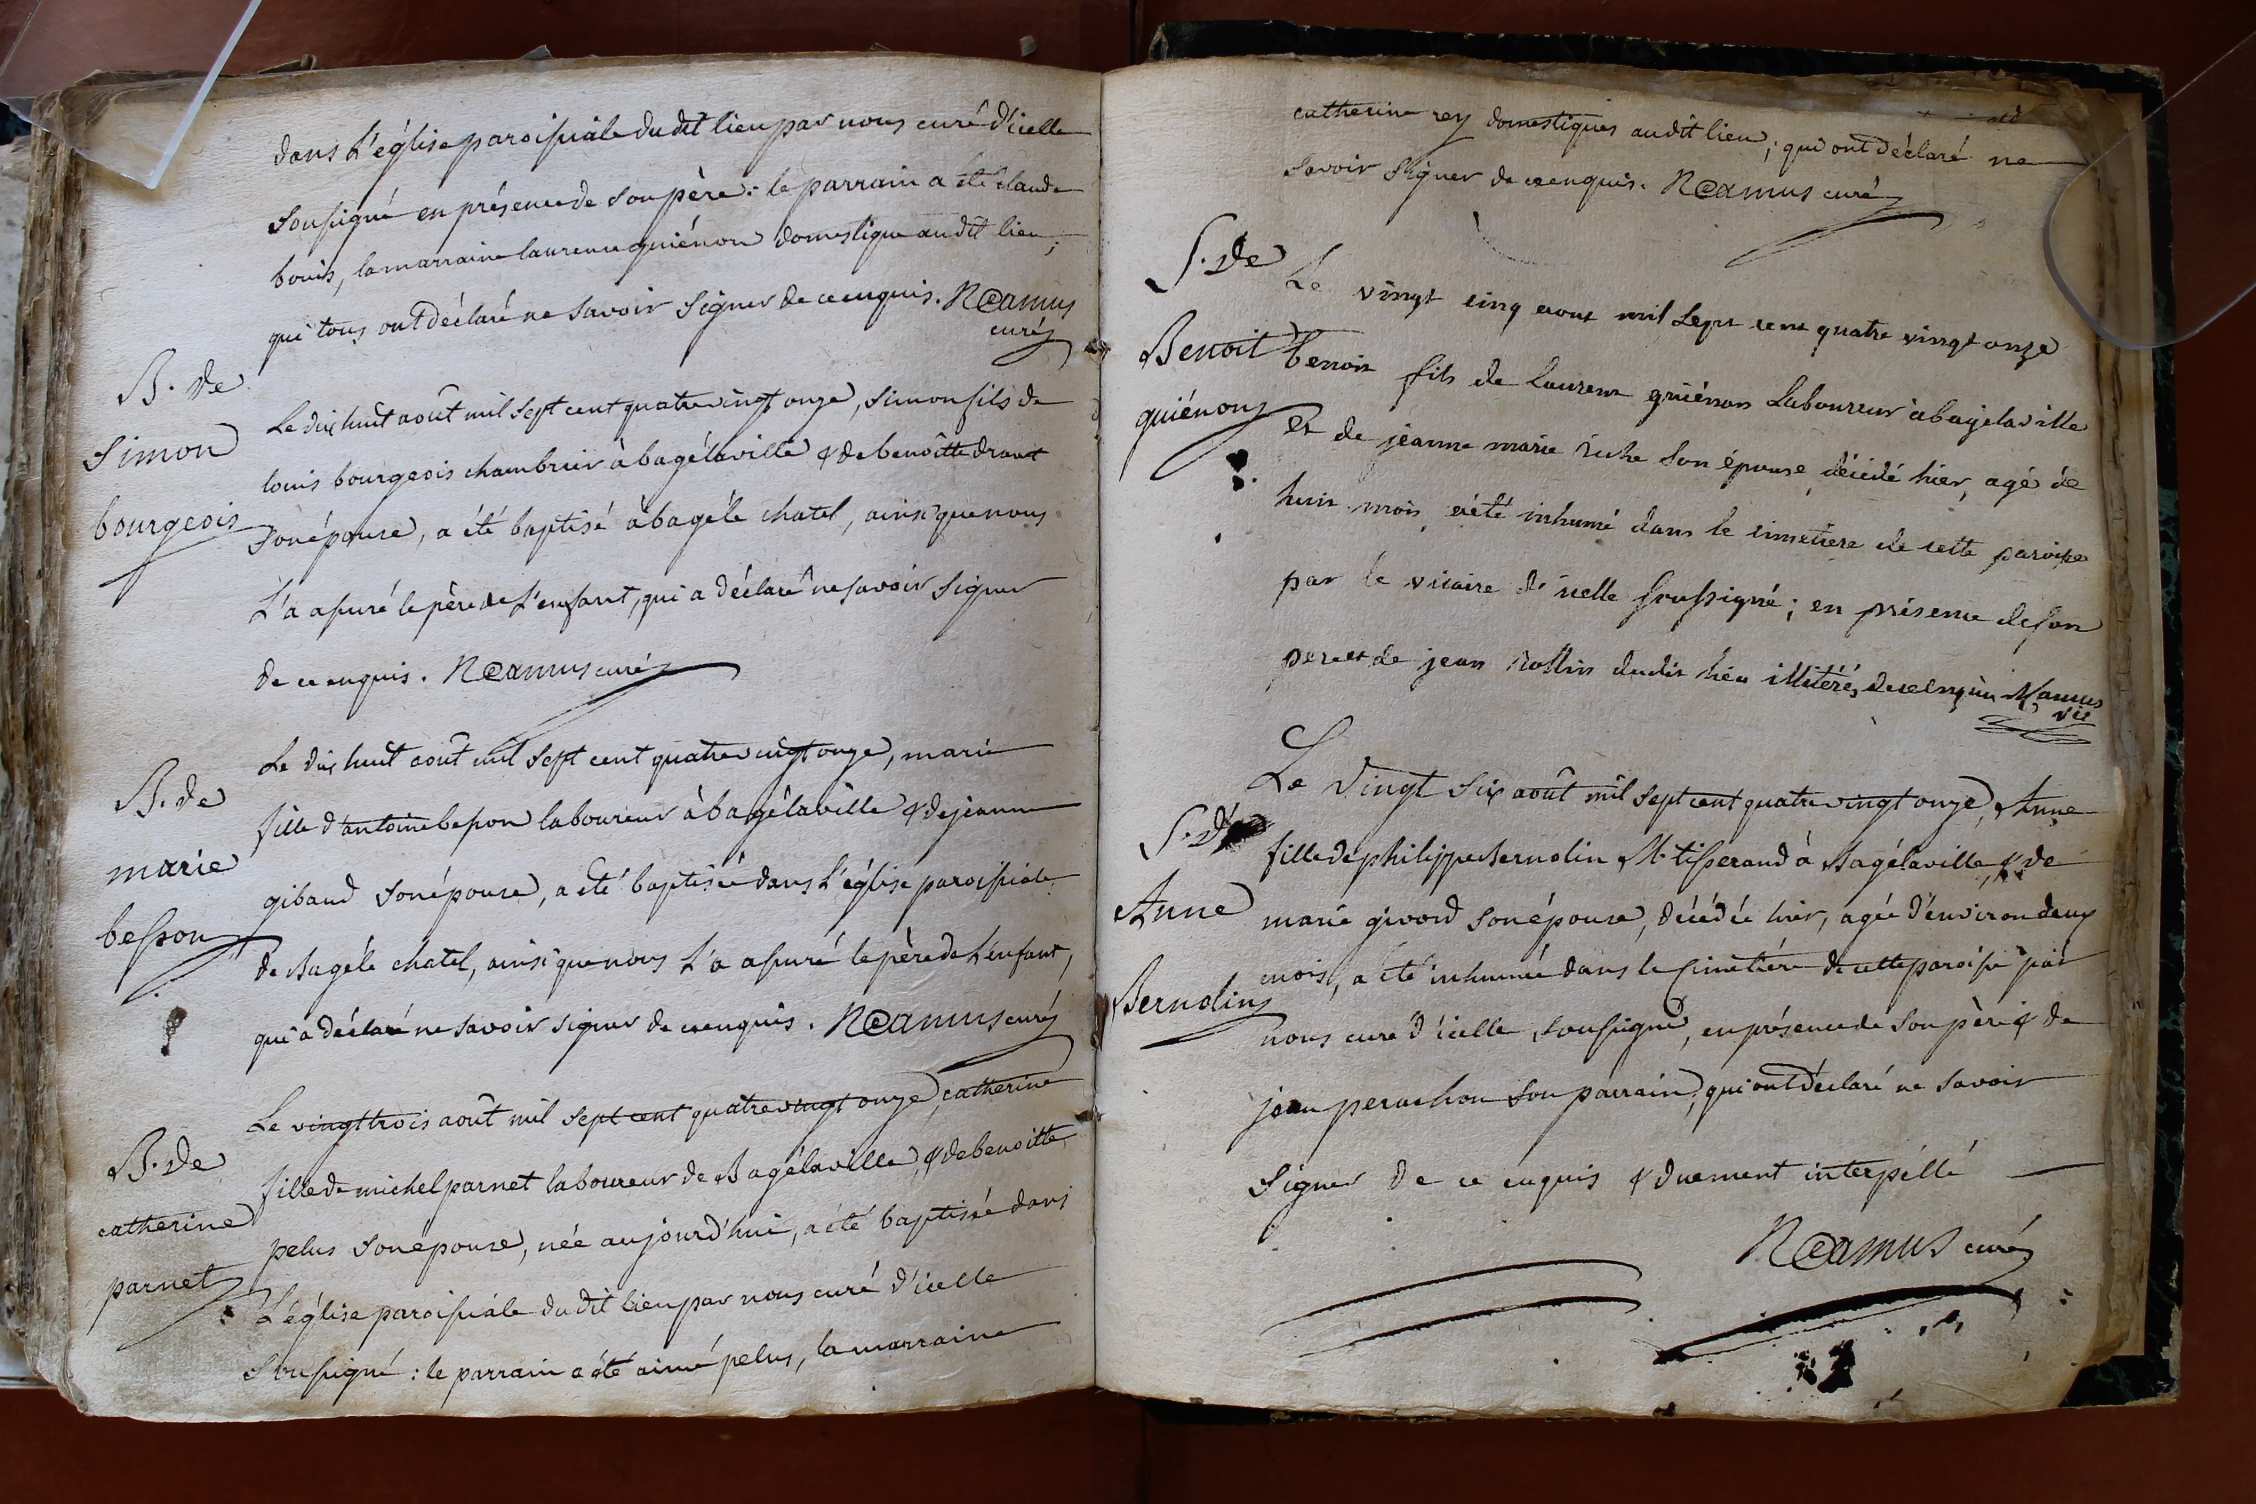 dans L'église paroissiale dudit lieu par nous curé d'icelle
soussigné en présence de son père : le parrain a été claude
bouis, la marraine laurence guiénon domestique audit lieu ;
qui tous ont déclaré ne savoir signer de ce enquis. NCamus
curé
B. de
simon
bourgeois
Le dix huit août mil sept cent quatre vingt onze, simon fils de
louis bourgeois chambrier à bagélaville & de benoîtte drant
son épouse, a été baptisé à bagé le chatel, ainsi que nous
L'a assuré le père de L'enfant, qui a déclaré ne savoir signer
de ce enquis. NCamus curé
B. de
marie
besson
Le dix huit août mil sept cent quatre vingt onze, marie
fille d'antoine besson laboureur à bagélaville & de jeanne
gibaud son épouse, a été baptisée dans L'église paroissiale
de Bagé le chatel, ainsi que nous L'a assuré le père de L'enfant,
qui a déclaré ne savoir signer de ce enquis. NCamus curé
B. de
catherine
parnet
Le vingt trois août mil sept cent quatre vingt onze, catherine
fille de michel parnet laboureur de Bagélaville, & de benoitte
pelus son epouse, née aujourd'hui, a été baptisée dans
L'église paroissiale dudit lieu par nous curé d'icelle
soussigné : le parrain a été aimé pelus, la marraine
catherine rey domestiques audit lieu ; qui ont déclaré ne
savoir signer de ce enquis. NCamus curé
S. de
Benoit
guiénon
Le vingt cinq aout mil sept cent quatre vingt onze
benoit fils de laurent guiénon Laboureur à bagélaville
et de jeanne marie riche son épouse, décédé hier, agé de
huit mois, a été inhumé dans le cimetiere de cette paroisse
par le vicaire d'icelle soussigné ; en présence de son
pere et de jean rollin dudit lieu illitérés de ce enquis Camus
vic
S. de
Anne
Bernolin
Le vingt six août mil sept cent quatre vingt onze, Anne
fille de philippe Bernolin M. tisserand à Bagélaville, & de
marie givord son épouse, décédée hier, agée d'environ deux
mois, a été inhumée dans le cimetière de cette paroisse par
nous curé d'icelle soussigné, en présence de son père & de
jean perachon son parrain, qui ont déclaré ne savoir
signer de ce enquis & duement interpéllé
NCamus curé